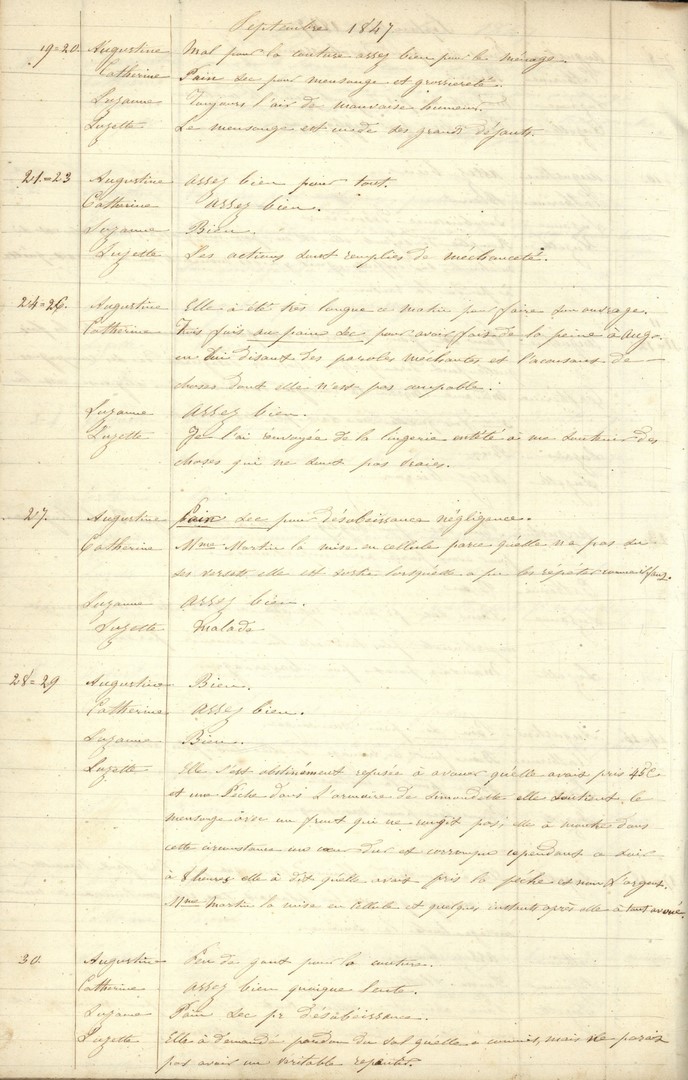 Septembre 1847
19=20. Augustine Mal pour la couture assez bien pour le ménage.
Catherine Pain sec pour mensonge et grossiereté.
Suzanne Toujours l'air de mauvaise humeur.
Suzette Le mensonge est un de des grands défauts.
21=23 Augustine Assez bien pour tout.
Catherine Assez bien.
Suzanne Bien.
Suzette Ses actions sont remplies de méchanceté.
24=26. Augustine Elle à été très longue ce matin pour faire son ouvrage.
Catherine Trois fois au pain sec pour avoir fait de la peine à Aug.
en lui disant des paroles méchantes et l'accusant de
choses dont elle n'est pas coupable.
Suzanne Assez bien.
Suzette Je l'ai renvoyée de la lingerie entêté à me soutenir des
choses qui ne sont pas vraies.
27. Augustine Pain sec pour désobeissance négligence.
Catherine Mme Martin la mise en cellule parce qu'elle ne pas su
ses versets elle est sortie lorsqu'elle a pu les répéter
Suzanne Assez bien.
Suzette Malade
28=29 Augustine Bien.
Catherine Assez bien.
Suzanne Bien.
Suzette Elle s'est obstinément refusée à avouer qu'elle avait pris 45c
et une Pêche dans l'armoire de Simondette elle soutient le
mensonge avec un front qui ne rougit pas, elle à montré dans
cette circonstance un cœur dur et corrompu cependant ce soir
à 8 heures elle à dit qu'elle avait pris la pêche et non l'argent.
Mme Martin la mise en cellule et quelques instants après elle à tout avoué.
30. Augustine Peu de gout pour la couture.
Catherine Assez bien quoique lente.
Suzanne Pain sec pr désobéissance.
Suzette Elle à demandé pardon du vol qu'elle a commis, mais ne parait
pas avoir un veritable repentir.